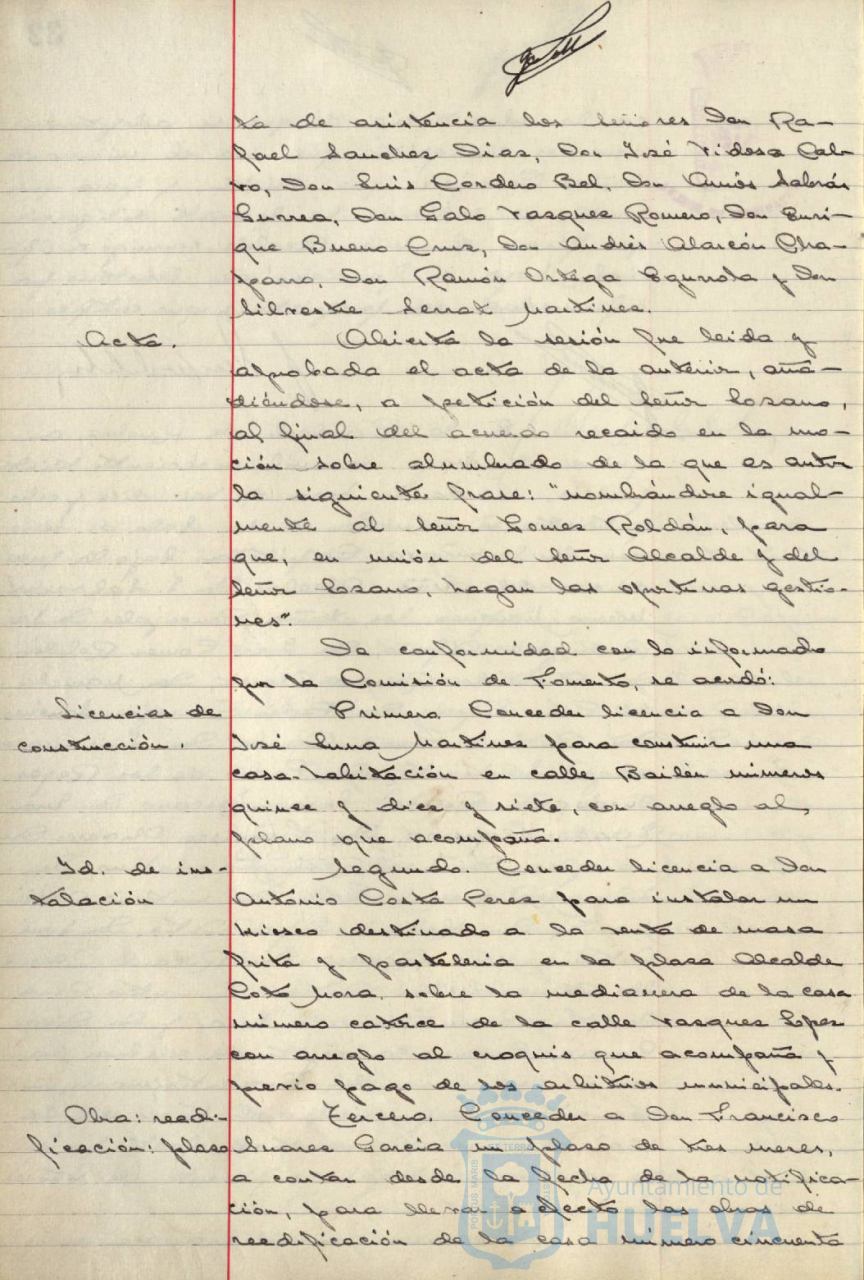 ta de asistencia los señores Don Ra-
fael Sanchez Diaz, Don José Vidosa Cal-
vo, Don Luis Cordero Bel, Don Amós Sabrás
Gurrea, Don Galo Vazquez Romero, Don Enri-
que Bueno Cruz, Don Andrés Alarcón Cha-
parro, Don Ramón Ortega Egurrola y Don
Silvestre Serrat Martinez.
Acta. Abierta la sesión fue leida y
aprobada el acta de la anterior, aña-
diéndose, a petición del Señor Lozano,
al final del acuerdo recaido en la mo-
ción sobre alumbrado de la que es autor
la siguiente frase: "nombrándose igual-
mente al Señor Gomez Roldán, para
que, en unión del Señor Alcalde y del
Señor Lozano, hagan las oportunas gestio-
nes".
De conformidad con lo informado
por la Comisión de Fomento, se acordó:
Licencias de Primero. Conceder licencia a Don
construcción. José Luna Martinez para construir una
casa-habitación en calle Bailén números
quince y diez y siete, con arreglo al
plano que acompaña.
Id. de ins- Segundo. Conceder licencia a Don
talación Antonio Costa Perez para instalar un
kiosco destinado a la venta de masa
frita y pasteleria en la plaza Alcalde
Coto Mora, sobre la medianera de la casa
número catorce de la calle Vazquez Lopez
con arreglo al croquis que acompaña y
previo pago de los arbitrios municipales.
Obra: reedi- Tercero. Conceder a Don Francisco
ficación: plazo Suarez Garcia un plazo de tres meses,
a contar desde la fecha de la notifica-
ción, para llevar a efecto las obras de
reedificación de la casa número cincuenta
Ayuntamiento de
HUELVA